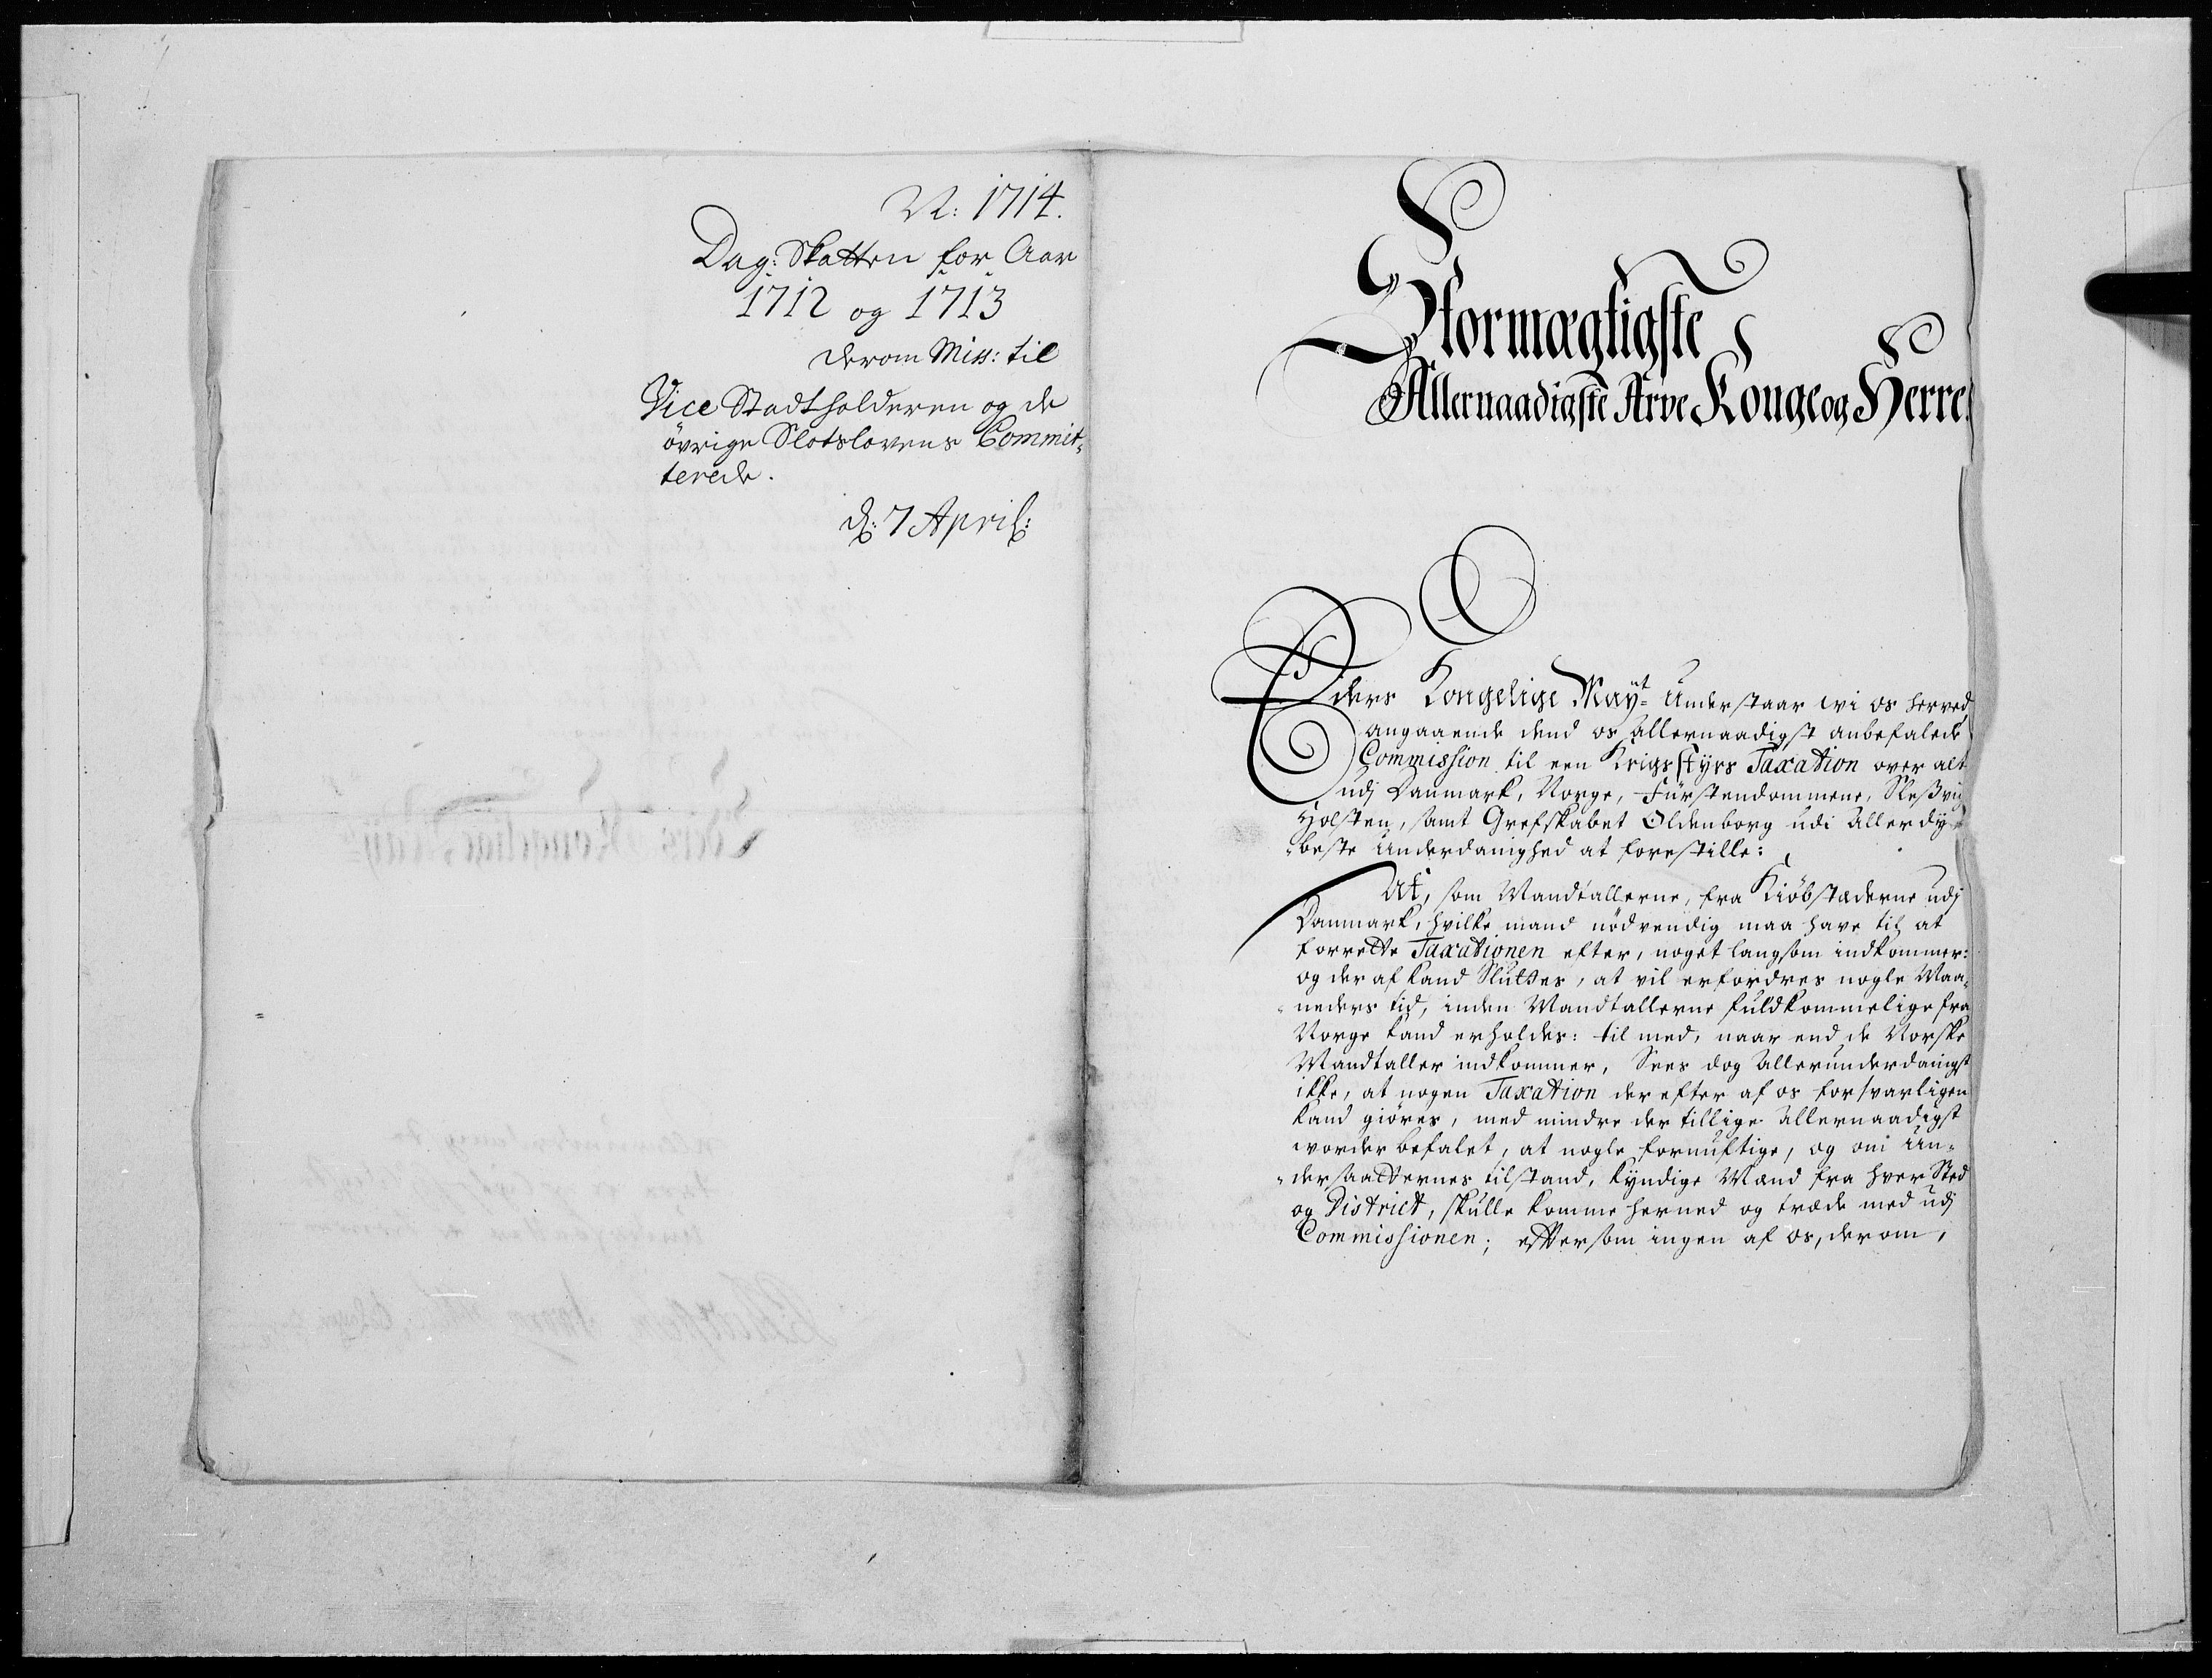 N: 1714.
Dag: Skatten for Aar
1712 og 1713
derom Miss: til
Vice Stadtholderen og de
øvrige Slotslovens Commit-
terede.
d: 7 April:
Stormægtigste
Allernaadigste Arve Konge og Herre
Eders Kongelige Mayt understaar wi os herved
angaaende dend os allernaadigst anbefalede
Commission til een Krigsstyrs Taxation over alt
udj Danmark, Norge, Fürstendommene, Sleßvig
Holsten, samt Grefskabet Oldenborg udi allerdy-
beste underdanighed at forestille:
At, som Mandtallerne, fra Kiøbstæderne udj
Danmark, hvilke mand nödvendig maa have til at
forrette Taxationen efter, noget langsom indkommer:
og der af kand Sluttes, at vil erfordres nogle Maa-
neders tid, inden Mandtallerne fuldkommelige fra
Norge kand erholdes: til med, naar end de Norske
Mandtaller indkommer, Sees dog allerunderdanigst
ikke, at nogen Taxation der efter af os forsvarligen
kand giøres, med mindre der tillige allernaadigst
worder befalet, at nogle fornuftige, og om Un-
dersaatternes tilstand, kyndige Mænd fra hver Sted
og District, skulle komme herned og træde med udj
Commissionen; eftersom ingen af os, derom,